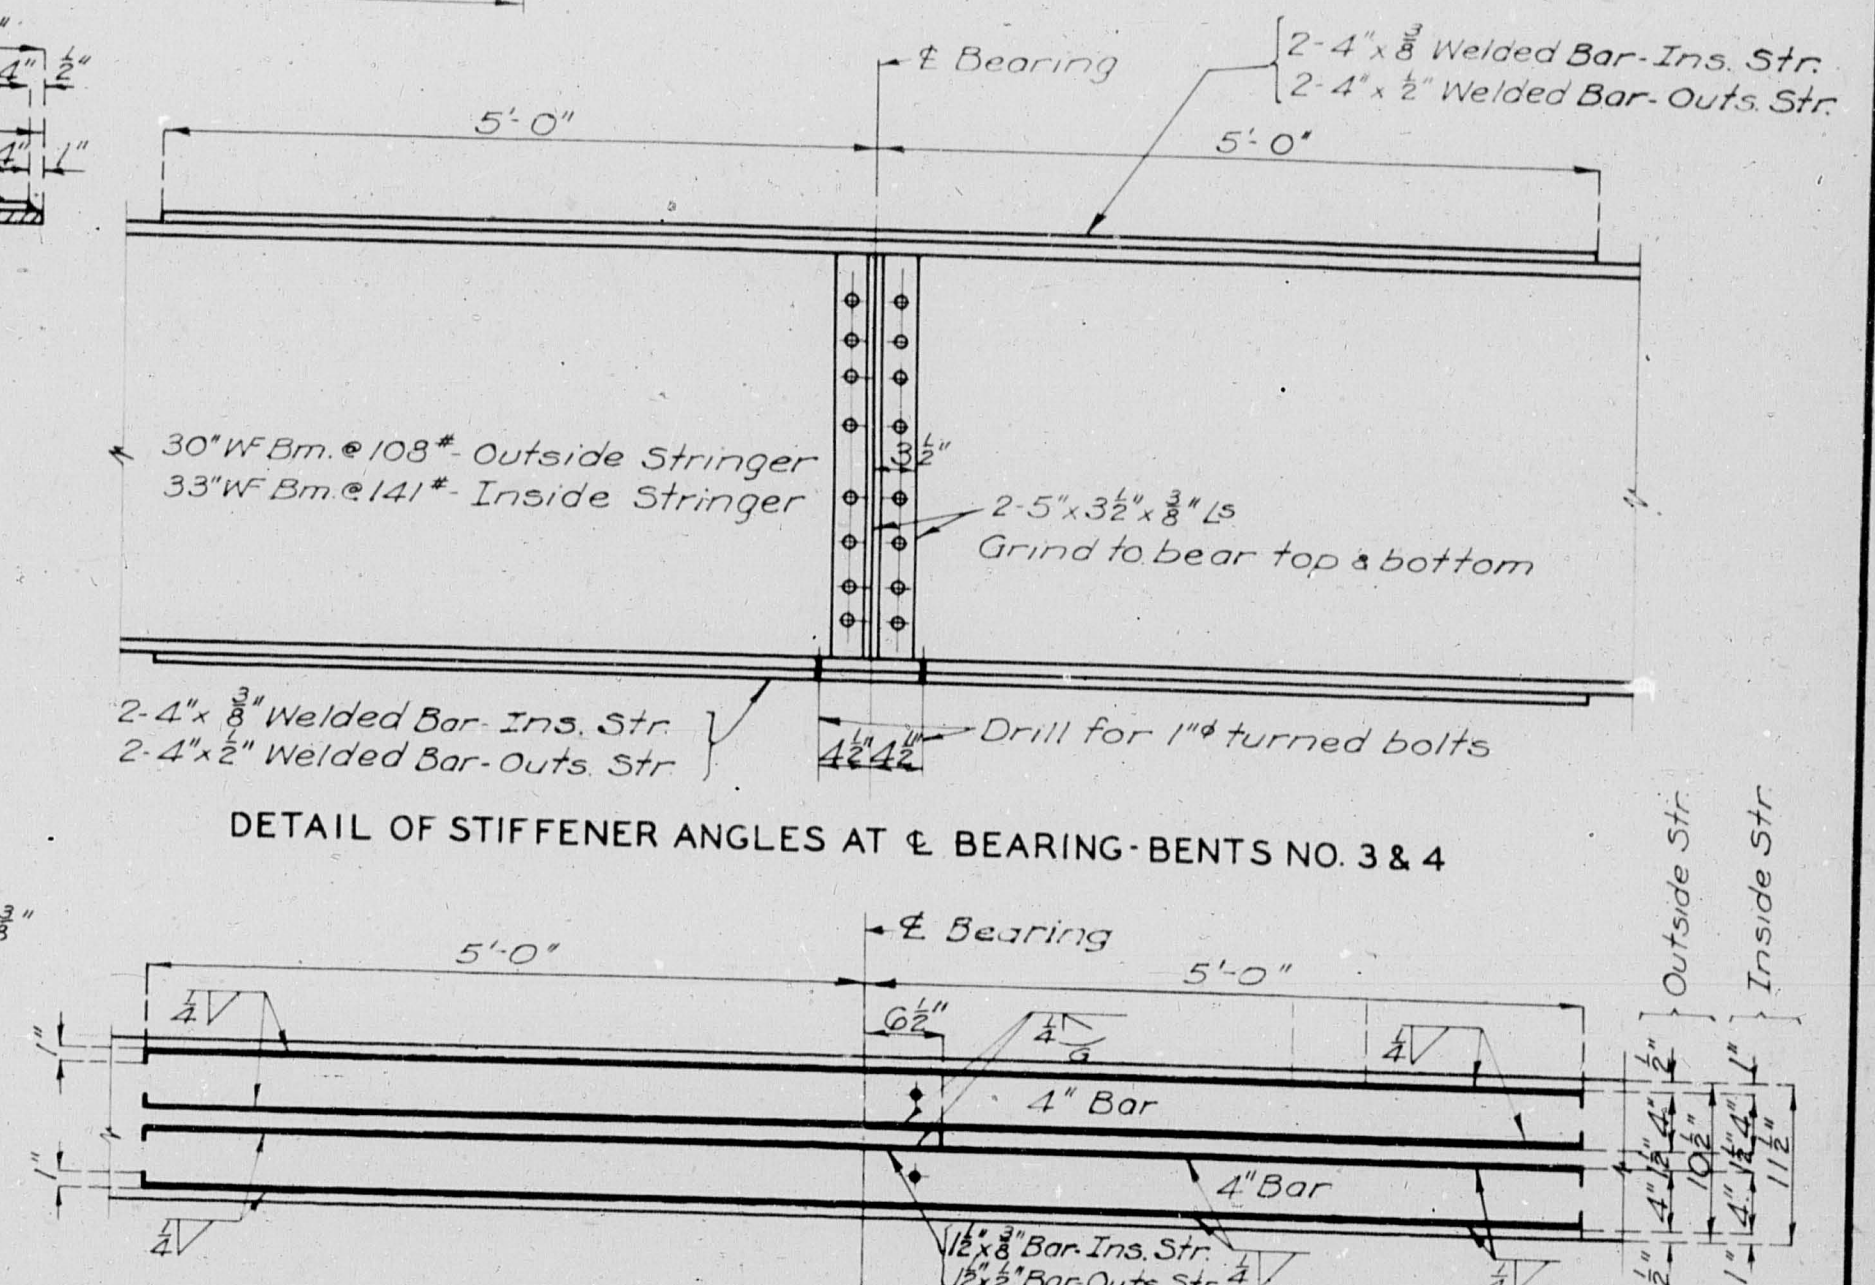 4" 1/2"
4" 1"
℄ Bearing
2-4"x 3/8 Welded Bar-Ins. Str.
2-4"x 1/2" Welded Bar-Outs. Str.
5'-0"
5'-0"
30" WF Bm. @ 108#- Outside Stringer
33" WF Bm. @ 141#- Inside Stringer
3 1/2"
2-5"x3 1/2"x 3/8" Ls
Grind to bear top & bottom
2-4"x 3/8" Welded Bar-Ins. Str.
2-4"x 1/2" Welded Bar-Outs. Str.
4 1/2" 4 1/2"
Drill for 1"φ turned bolts
DETAIL OF STIFFENER ANGLES AT ℄ BEARING-BENTS NO. 3 & 4
3/8"
℄ Bearing
5'-0"
5'-0"
6 1/2"
1/4
1/4
G
1/4
1"
1"
4" Bar
4" Bar
1/4
1 1/2"x 3/8" Bar-Ins. Str.
1 1/2"x 1/2" Bar-Outs. Str.
1/4
1/4
Outside Str.
Inside Str.
1/2" 4" 1 1/2" 4" 1/2"
10 1/2"
1" 4" 1 1/2" 4" 1"
11 1/2"